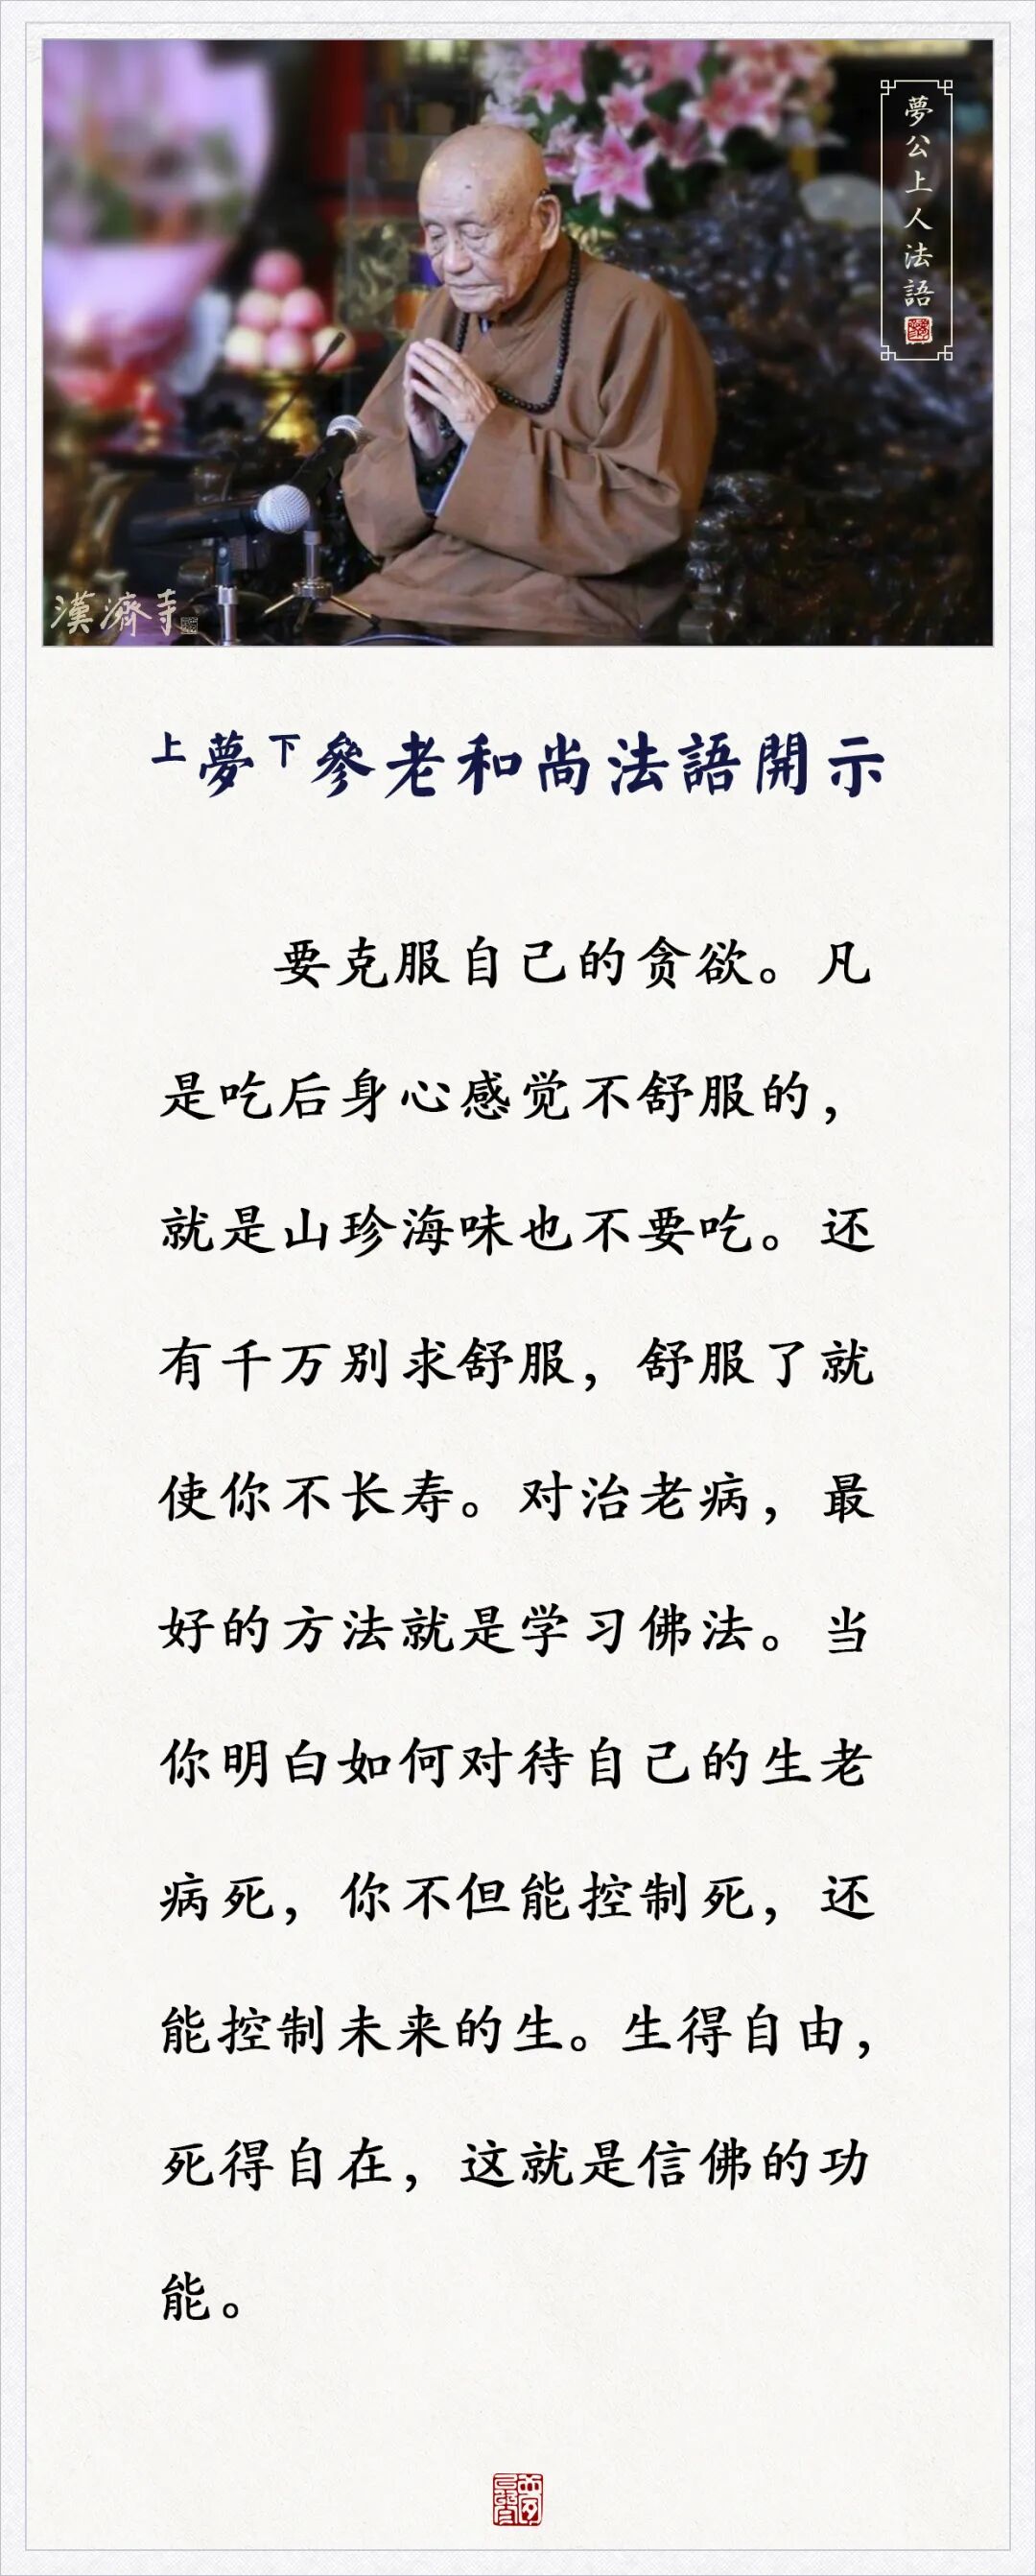 夢公上人法語
漢濟寺
上夢下參老和尚法語開示
要克服自己的贪欲。凡
是吃后身心感觉不舒服的，
就是山珍海味也不要吃。还
有千万别求舒服，舒服了就
使你不长寿。对治老病，最
好的方法就是学习佛法。当
你明白如何对待自己的生老
病死，你不但能控制死，还
能控制未来的生。生得自由，
死得自在，这就是信佛的功
能。